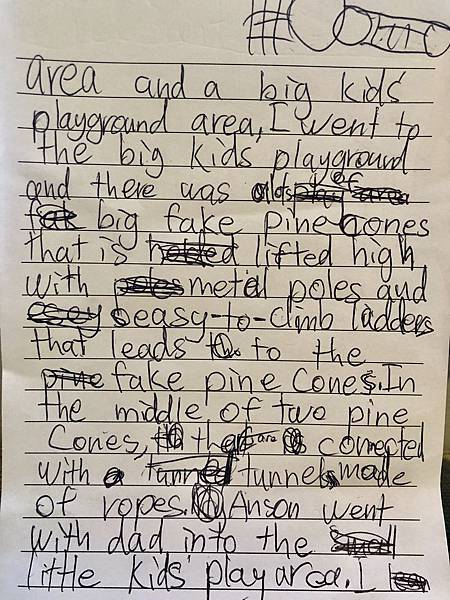 area and a big kids'
playground area, I went to
the big kids playground
and there was a lots of
big fake pine cones
that is lifted high
with metal poles and
easy-to-climb ladders
that leads to the
fake pine cones. In
the middle of two pine
cones, that are connected
with tunnels made
of ropes. Anson went
with dad into the
little kids' play area. I